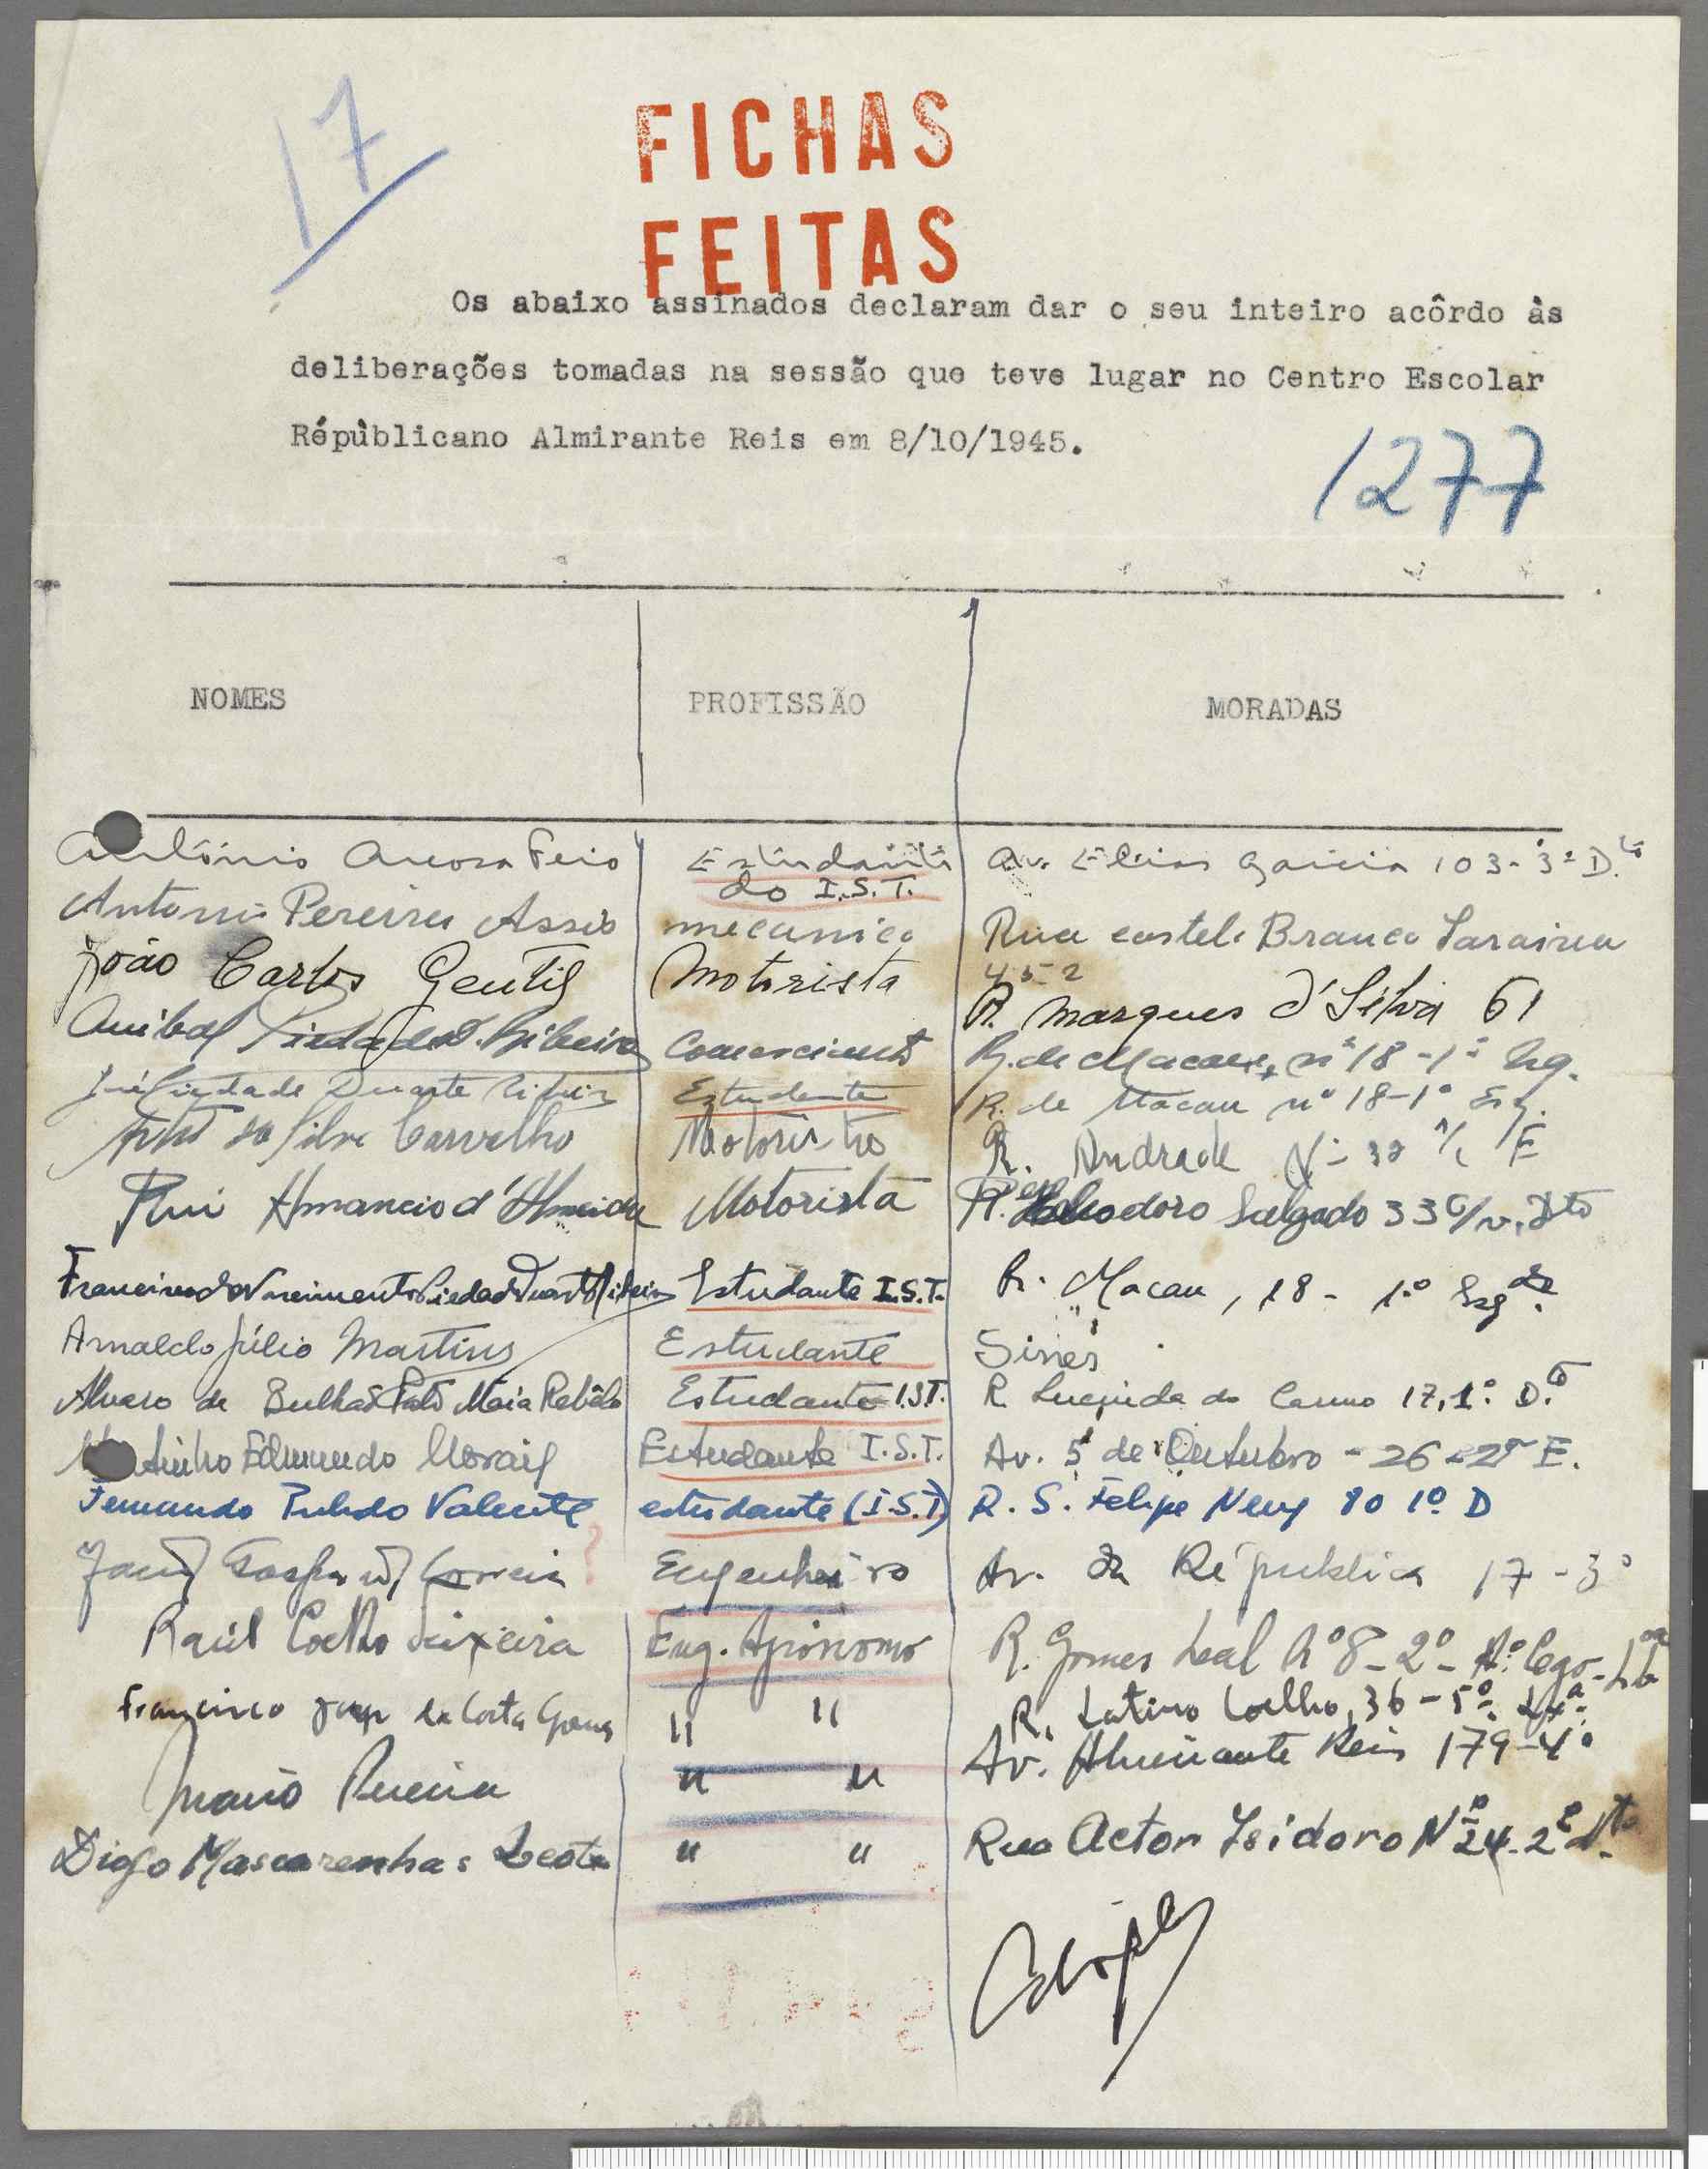 17
FICHAS
FEITAS
Os abaixo assinados declaram dar o seu inteiro acôrdo às
deliberações tomadas na sessão que teve lugar no Centro Escolar
Républicano Almirante Reis em 8/10/1945.
1277
NOMES PROFISSÃO MORADAS
António Areosa Feio Estudante Av. Elias Garcia 103-3º D.to
do I.S.T.
Antonio Pereira Assis mecanico Rua castelo Branco Saraiva
452
João Carlos Gentil Motorista R. Marques d'Silva 61
Anibal Piedade D. Ribeiro Comerciante R. de Macau, nº 18-1º Esq.
José Piedade Duarte Ribeiro Estudante R. de Macau nº 18-1º Esq.
da Silva Carvalho Motorista R. Andrade Nº E
Rui Amancio d'Almeida Motorista R. Heliodoro Salgado 33 c/v. Dto
Francisco do Nascimento Piedade Duarte Ribeiro Estudante I.S.T. R. Macau, 18 - 1.º Esq.
Arnaldo Júlio Martins Estudante Sines
Alvaro de Bulhão Pato Maia Rebêlo Estudante I.S.T. R. do Carmo 17, 1º. D.to
Edmundo Morais Estudante I.S.T. Av. 5 de Outubro - 26-2º E.
Fernando Pulido Valente estudante (I.S.T) R. S. Felipe Nery 80 1º. D
Correia ? Engenheiro Av. da República 17-3º
Raúl Coelho Teixeira Eng. Agrónomo R. Gomes Leal Nº 8-2º-
Francisco da Costa Gomes " " R. Latino Coelho, 36-5º.
Mario Pereira " " Av. Almirante Reis 179-4º
Diogo Mascarenhas " " Rua Actor Isidoro Nº 24-2º dto.